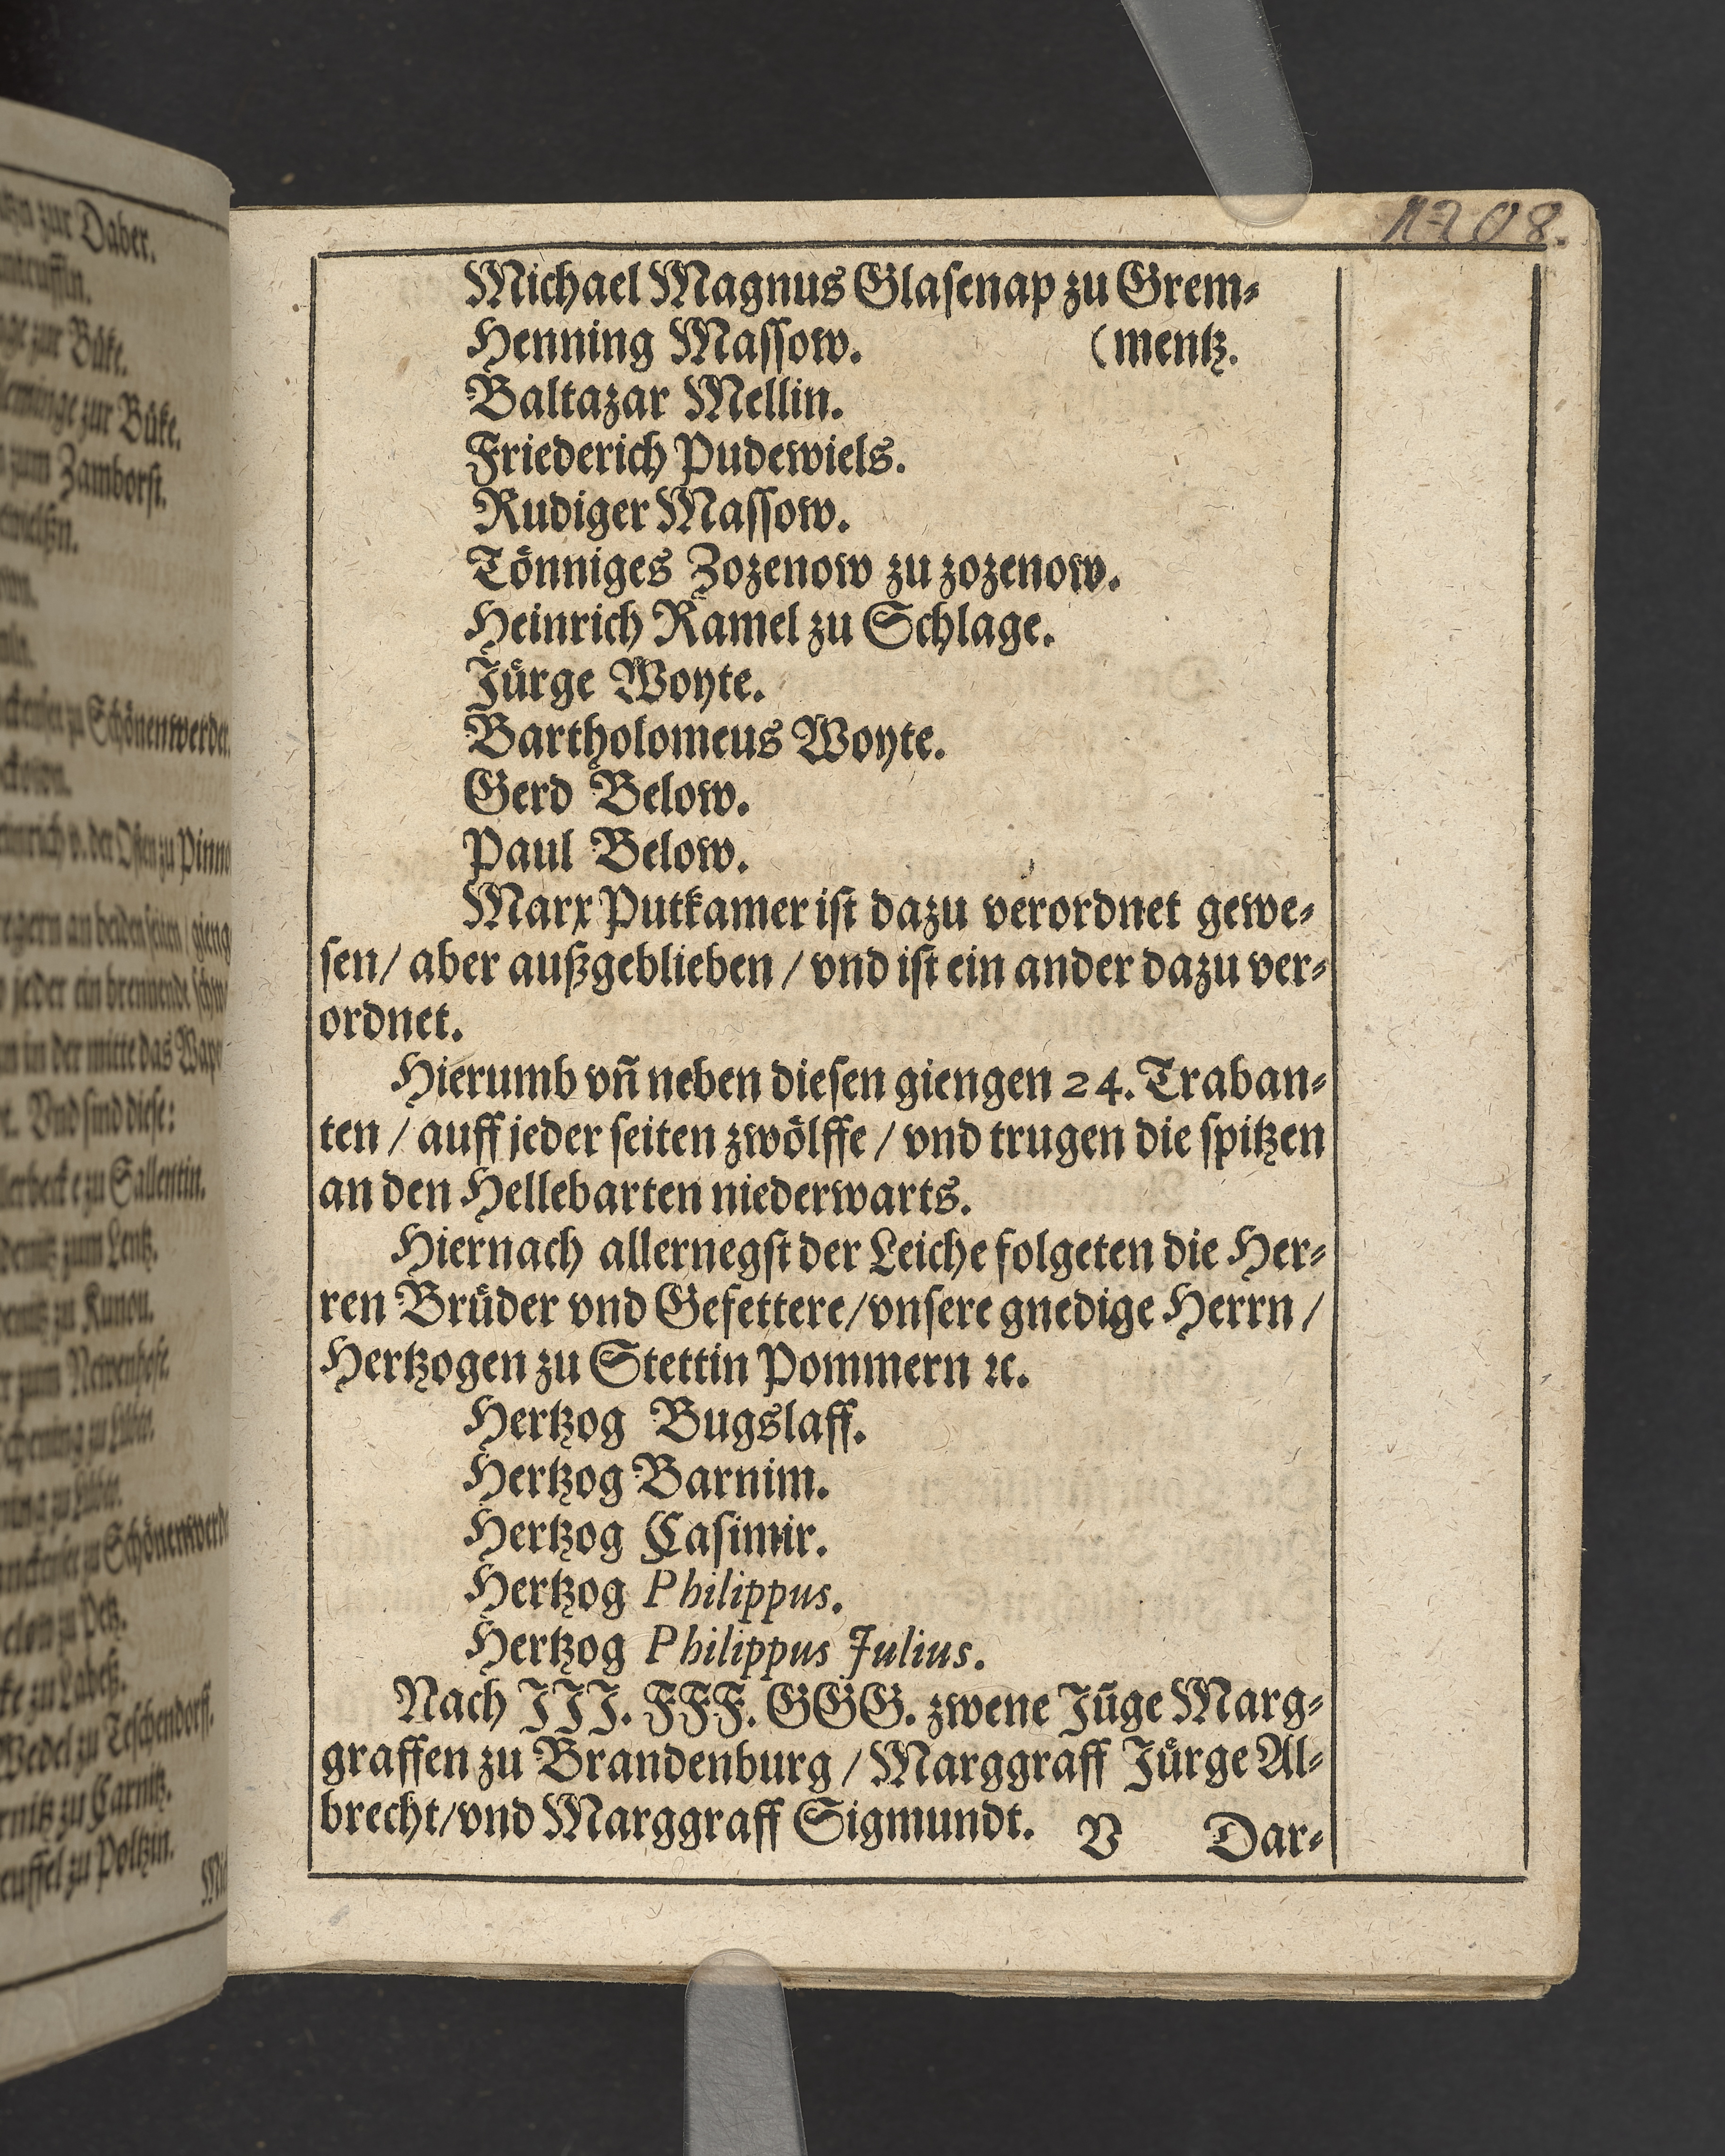 1208.
Michael Magnus Glasenap zu Grem-
Henning Massow. (mentz.
Baltazar Mellin.
Friederich Pudewiels.
Rudiger Massow.
Tönniges Zozenow zu zozenow.
Heinrich Ramel zu Schlage.
Jürge Woyte.
Bartholomeus Woyte.
Gerd Below.
Paul Below.
Marx Putkamer ist dazu verordnet gewe-
sen/ aber außgeblieben / vnd ist ein ander dazu ver-
ordnet.
Hierumb vñ neben diesen giengen 24. Traban-
ten / auff jeder seiten zwölffe / vnd trugen die spitzen
an den Hellebarten niederwarts.
Hiernach allernegst der Leiche folgeten die Her-
ren Brüder vnd Gefettere/vnsere gnedige Herrn /
Hertzogen zu Stettin Pommern ꝛc.
Hertzog Bugslaff.
Hertzog Barnim.
Hertzog Casimir.
Hertzog Philippus.
Hertzog Philippus Julius.
Nach JJJ. FFF. GGG. zwene Jũge Marg-
graffen zu Brandenburg / Marggraff Jürge Al-
brecht/vnd Marggraff Sigmundt. V Dar-
zur Daber.
zur Büke.
zur Büke.
zum Zamborst.
zu Schönenwerder.
v. der Osten zu
an beiden seiten / gieng
jeder ein brennende
in der mitte das
Vnd sind diese:
zu Sallentin.
zum Lentz.
zu Kunou.
zum
zu
zu
zu Labeß.
Wedel zu Teschendorf.
zu Carnitz.
zu Poltzin.